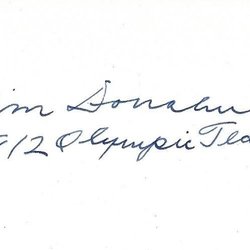 im Donahu
912 Olympic Tea